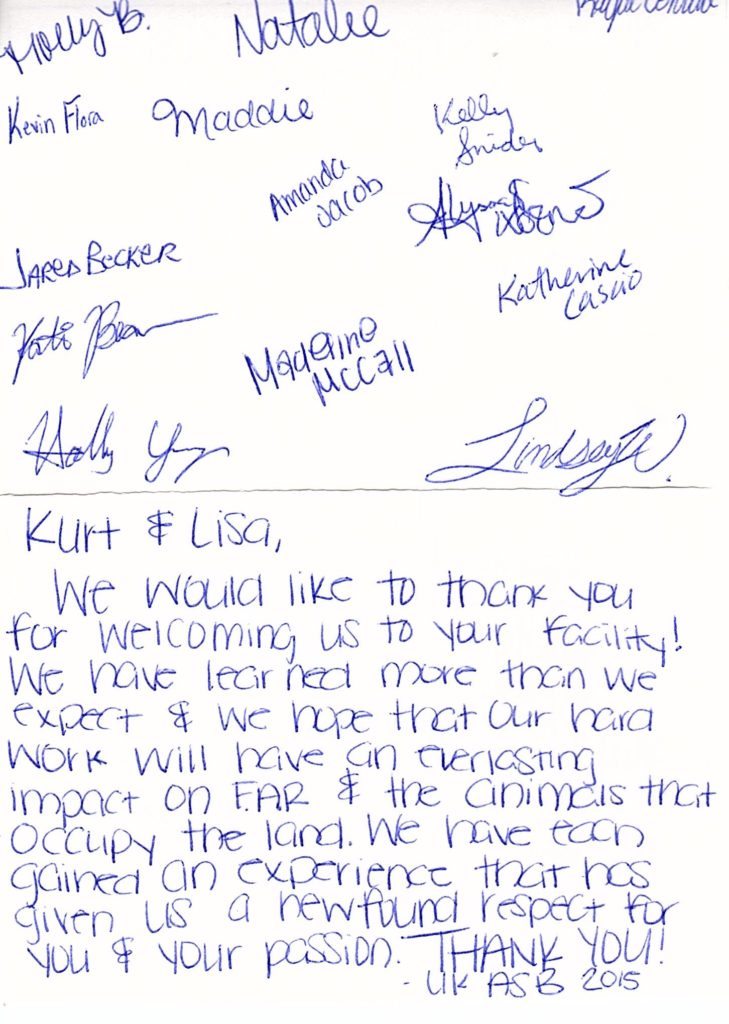 Holly B.
Natalie
Kevin Flora
Maddie
Kelly
Snider
Amanda
Jacob
JARED BECKER
Katherine
Cascio
Kati
Madeline
McCall
Holly
Lindsey W.
Kurt & Lisa,
We would like to thank you
for welcoming us to your facility!
We have learned more than we
expect & we hope that our hard
work will have an everlasting
impact on F.A.R & the animals that
occupy the land. We have each
gained an experience that has
given us a newfound respect for
you & your passion. THANK YOU!
- UK ASB 2015